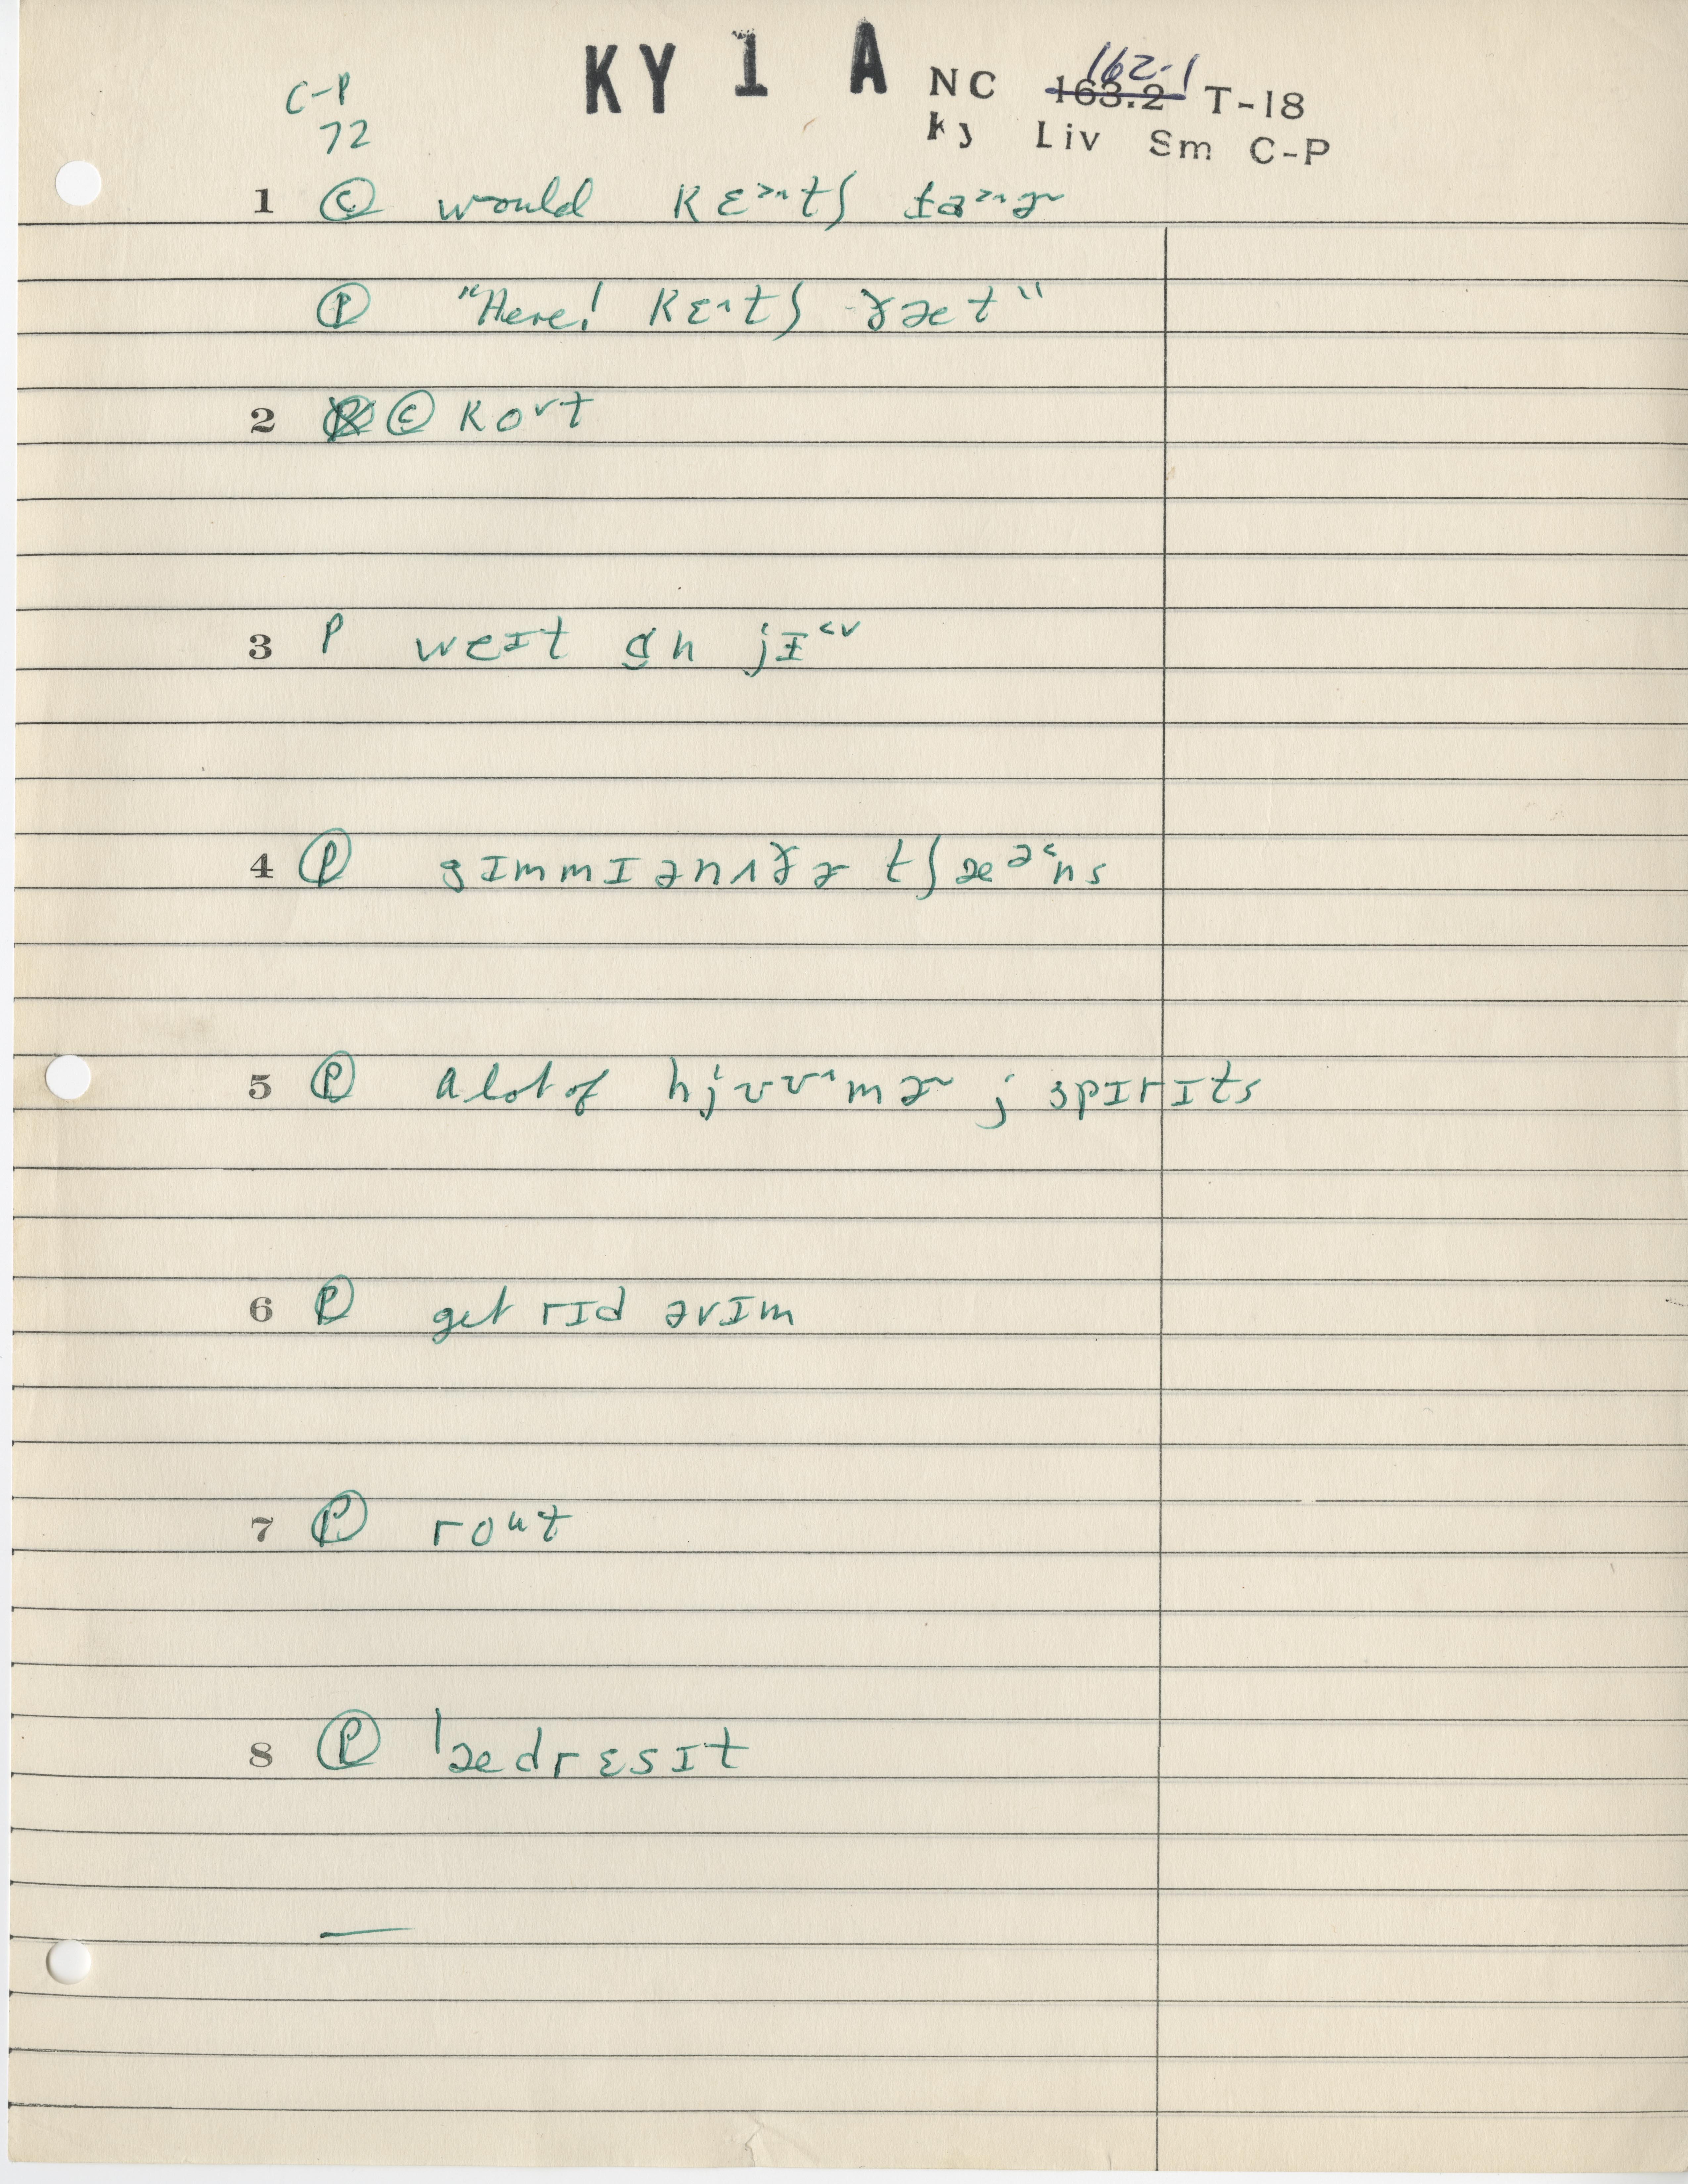 KY 1 A NC 163.2 162-1 T-18
Ky Liv Sm C-P
C-P
72
1 Ⓒ would kɛ˃˄tʃ
Ⓟ "Here! kɛ˄tʃ ðæt"
2 Ⓒ ko˅t
3 P weɪt ən jɪ˂˅
4 Ⓟ gɪmmɪ ənʌðɚ tʃæᵊ˂ns
5 Ⓟ a lot of hjʊ˅˄mɚ j spɪrɪts
6 Ⓟ get rɪd əvɪm
7 Ⓟ roᵘt
8 Ⓟ ˈædrɛsɪt